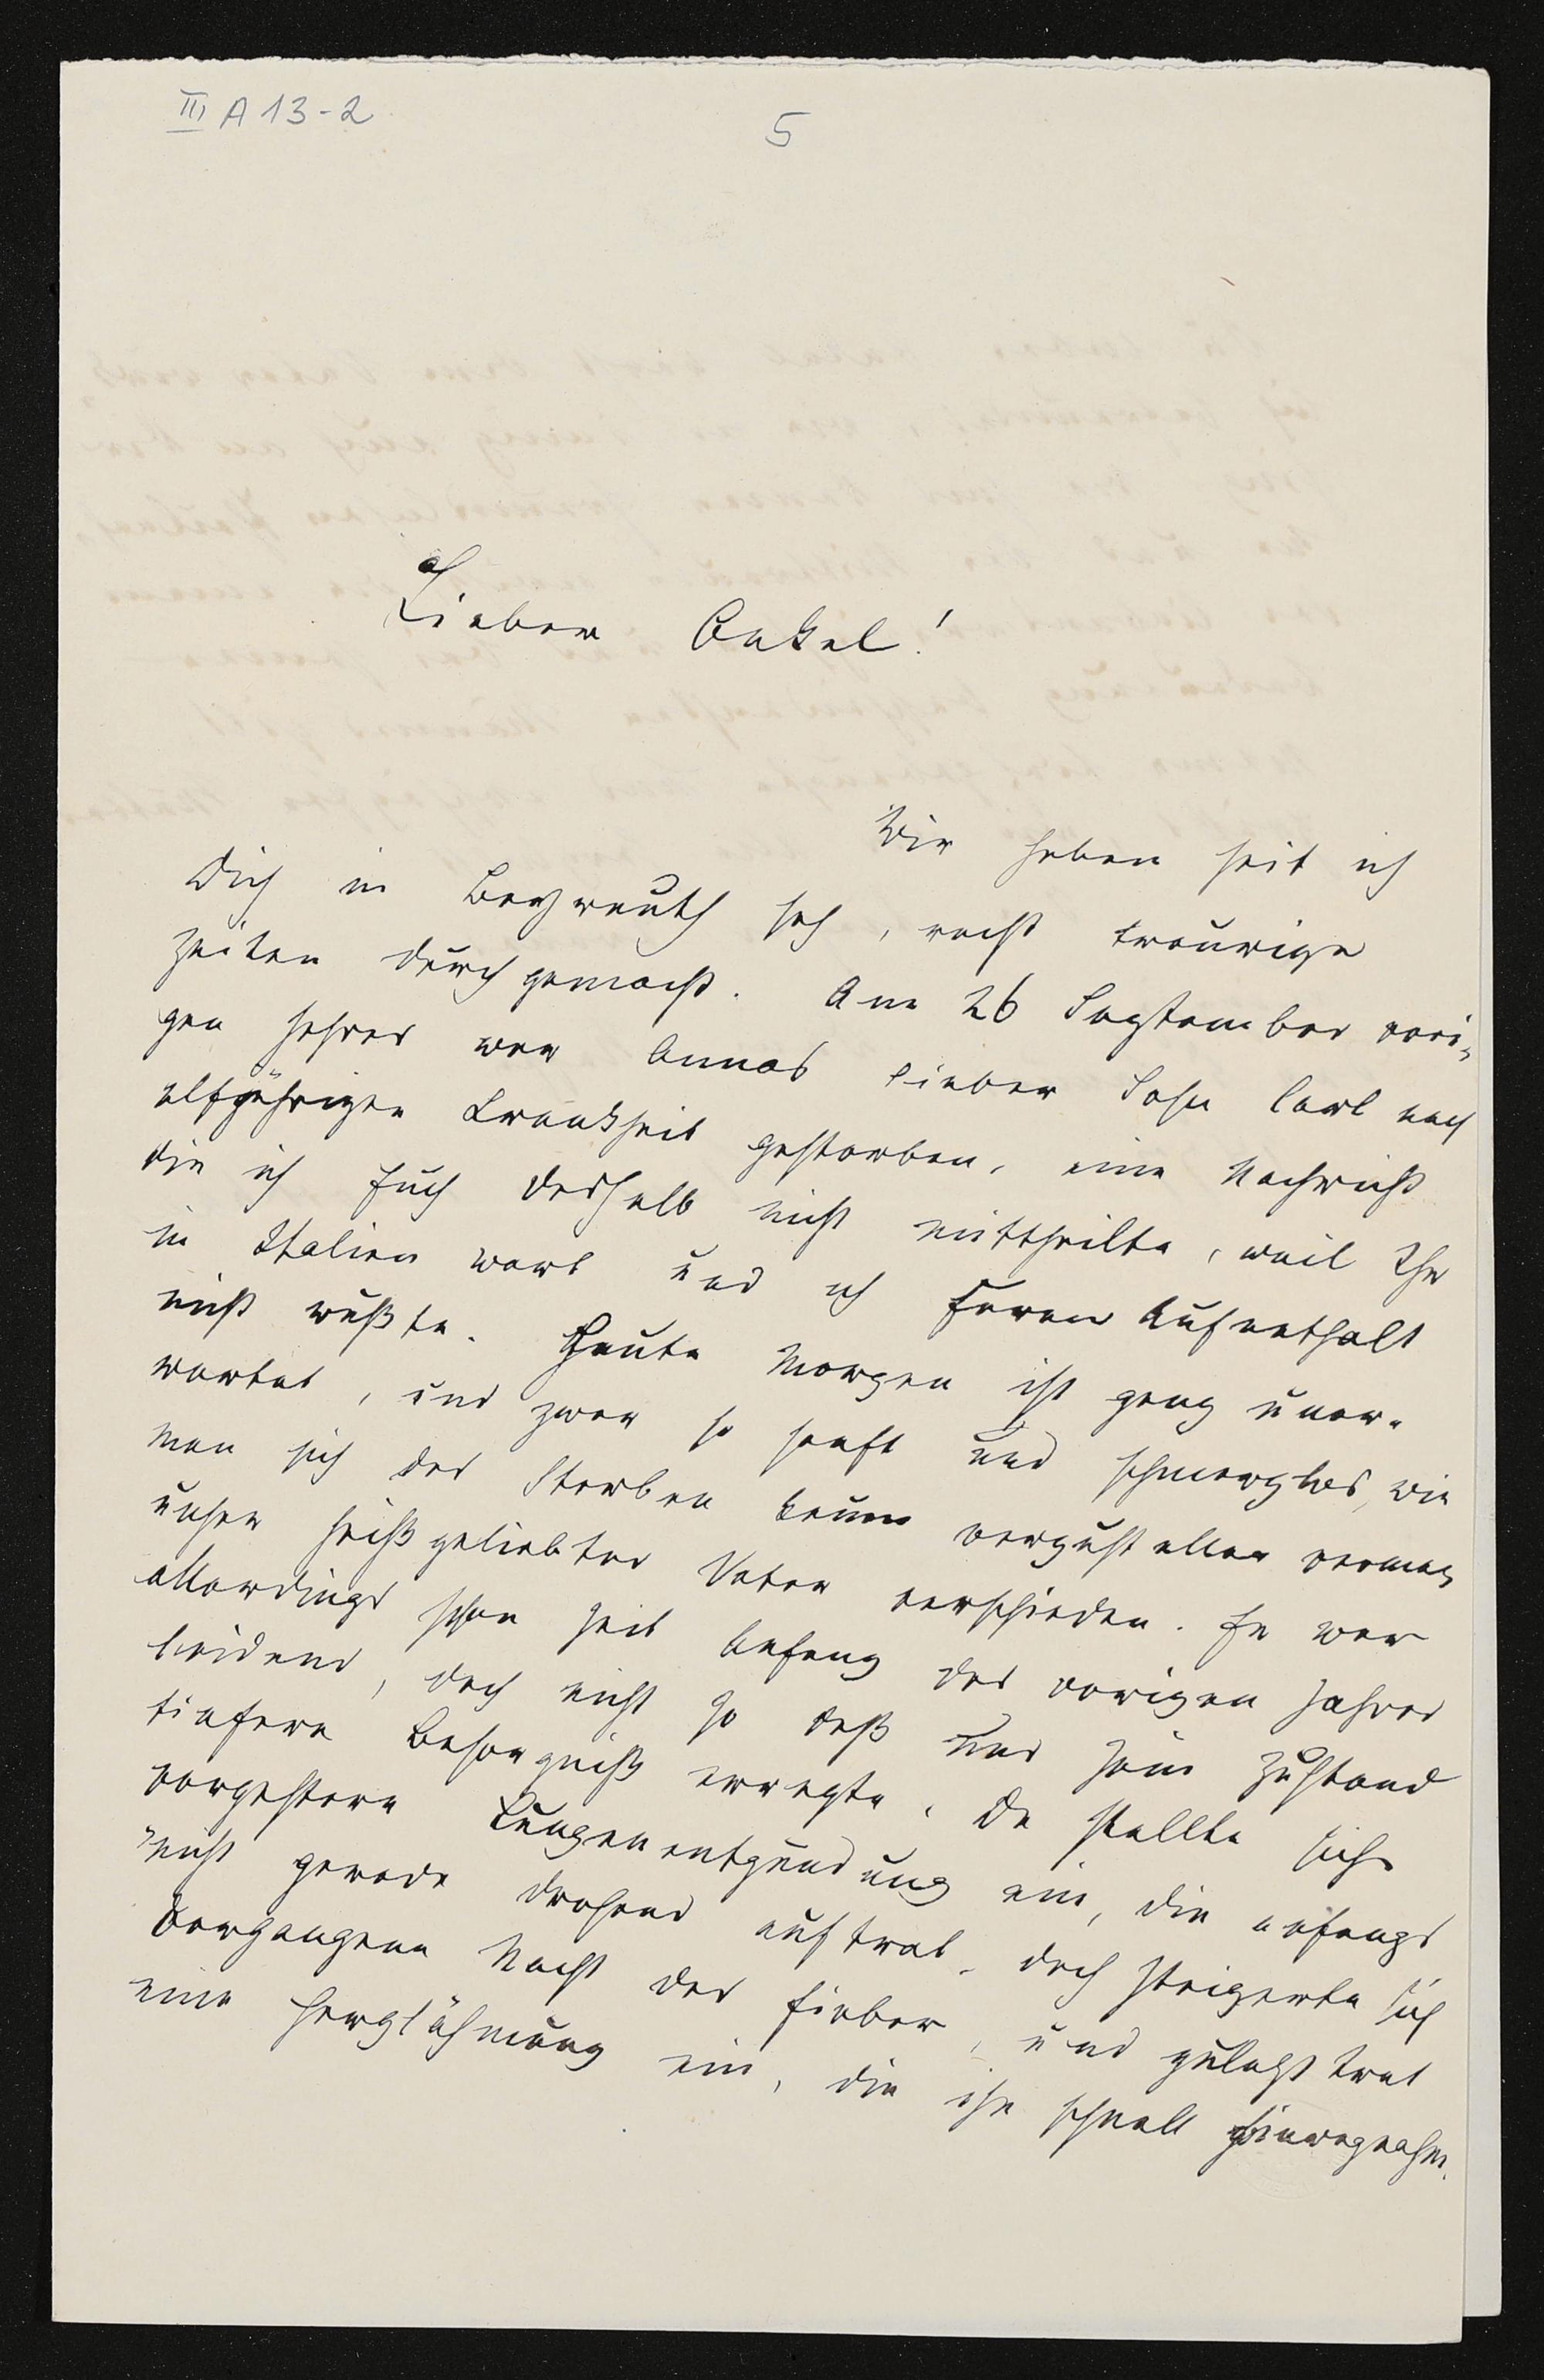 III A 13-2
5
Lieber Onkel!
Wir haben seit ich
Dich in Bayreuth sah, recht traurige
Zeiten durchgemacht. Am 26 September vori-
gen Jahres war Annas lieber Sohn Carl nach
elfjähriger Krankheit gestorben, eine Nachricht
die ich Euch deshalb nicht mittheilte, weil Ihr
in Italien wart und ich Euren Aufenthalt
nicht wußte. Heute Morgen ist ganz uner-
wartet, und zwar so sanft und schmerzlos, wie
man sich das Sterben kaum vorzustellen vermag
unser heißgeliebter Vater verschieden. Er war
allerdings schon seit Anfang des vorigen Jahres
leidend, doch nicht so daß uns sein Zustand
tiefere Besorgniß erregte. Da stellte sich
vorgestern Lungenentzündung ein, die anfangs
nicht gerade drohend auftrat, doch steigerte sich
vergangene Nacht das Fieber, und zuletzt trat
eine Herzlähmung ein, die ihn schnell hinwegnahm.